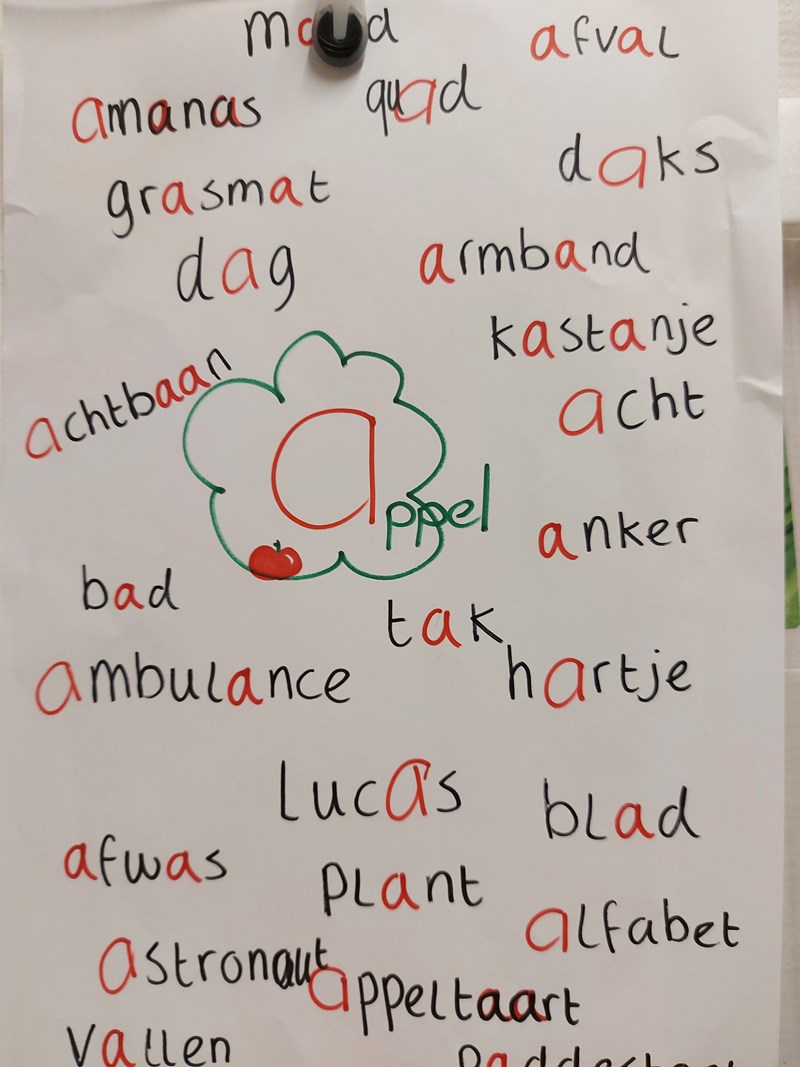 afval
amanas
quad
daks
grasmat
dag
armband
kastanje
achtbaan
acht
appel
anker
bad
tak
ambulance
hartje
Lucas
blad
afwas
plant
alfabet
astronaut
appeltaart
vallen